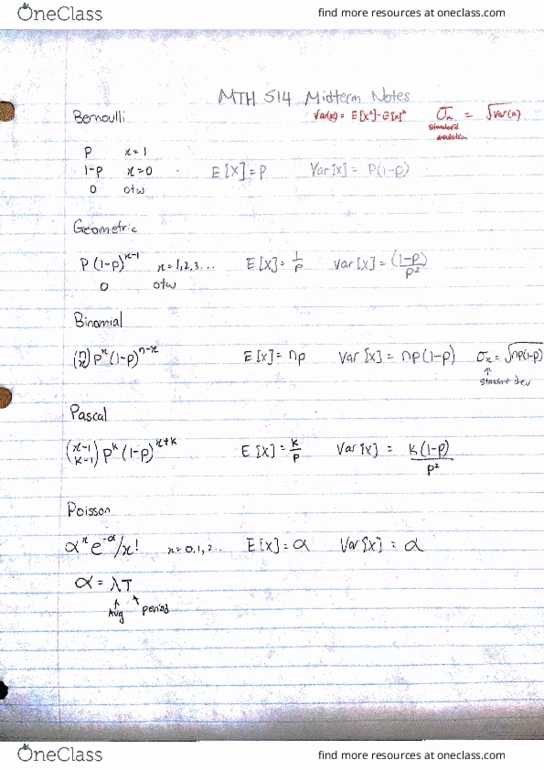 OneClass
find more resources at oneclass.com
MTH 514 Midterm Notes
Bernoulli
Var(x) = E[x²] - E[x]²
σₓ = √Var(x)
standard deviation
P x=1
1-p x=0 E[X]=p Var[X]= P(1-p)
0 otw
Geometric
P(1-p)^(x-1) x=1,2,3... E[X]= 1/p Var[X]= (1-p)/p²
0 otw
Binomial
(n x) p^x (1-p)^(n-x) E[X]= np Var[X]= np(1-p) σₓ = √np(1-p)
↑
standard dev
Pascal
(x-1 k-1) p^k (1-p)^(x+k) E[X]= k/p Var[X] = k(1-p)/p²
Poisson
α^x e^-α/x! x=0,1,2.. E[X]=α Var[X] = α
α = λT
Avg period
OneClass
find more resources at oneclass.com